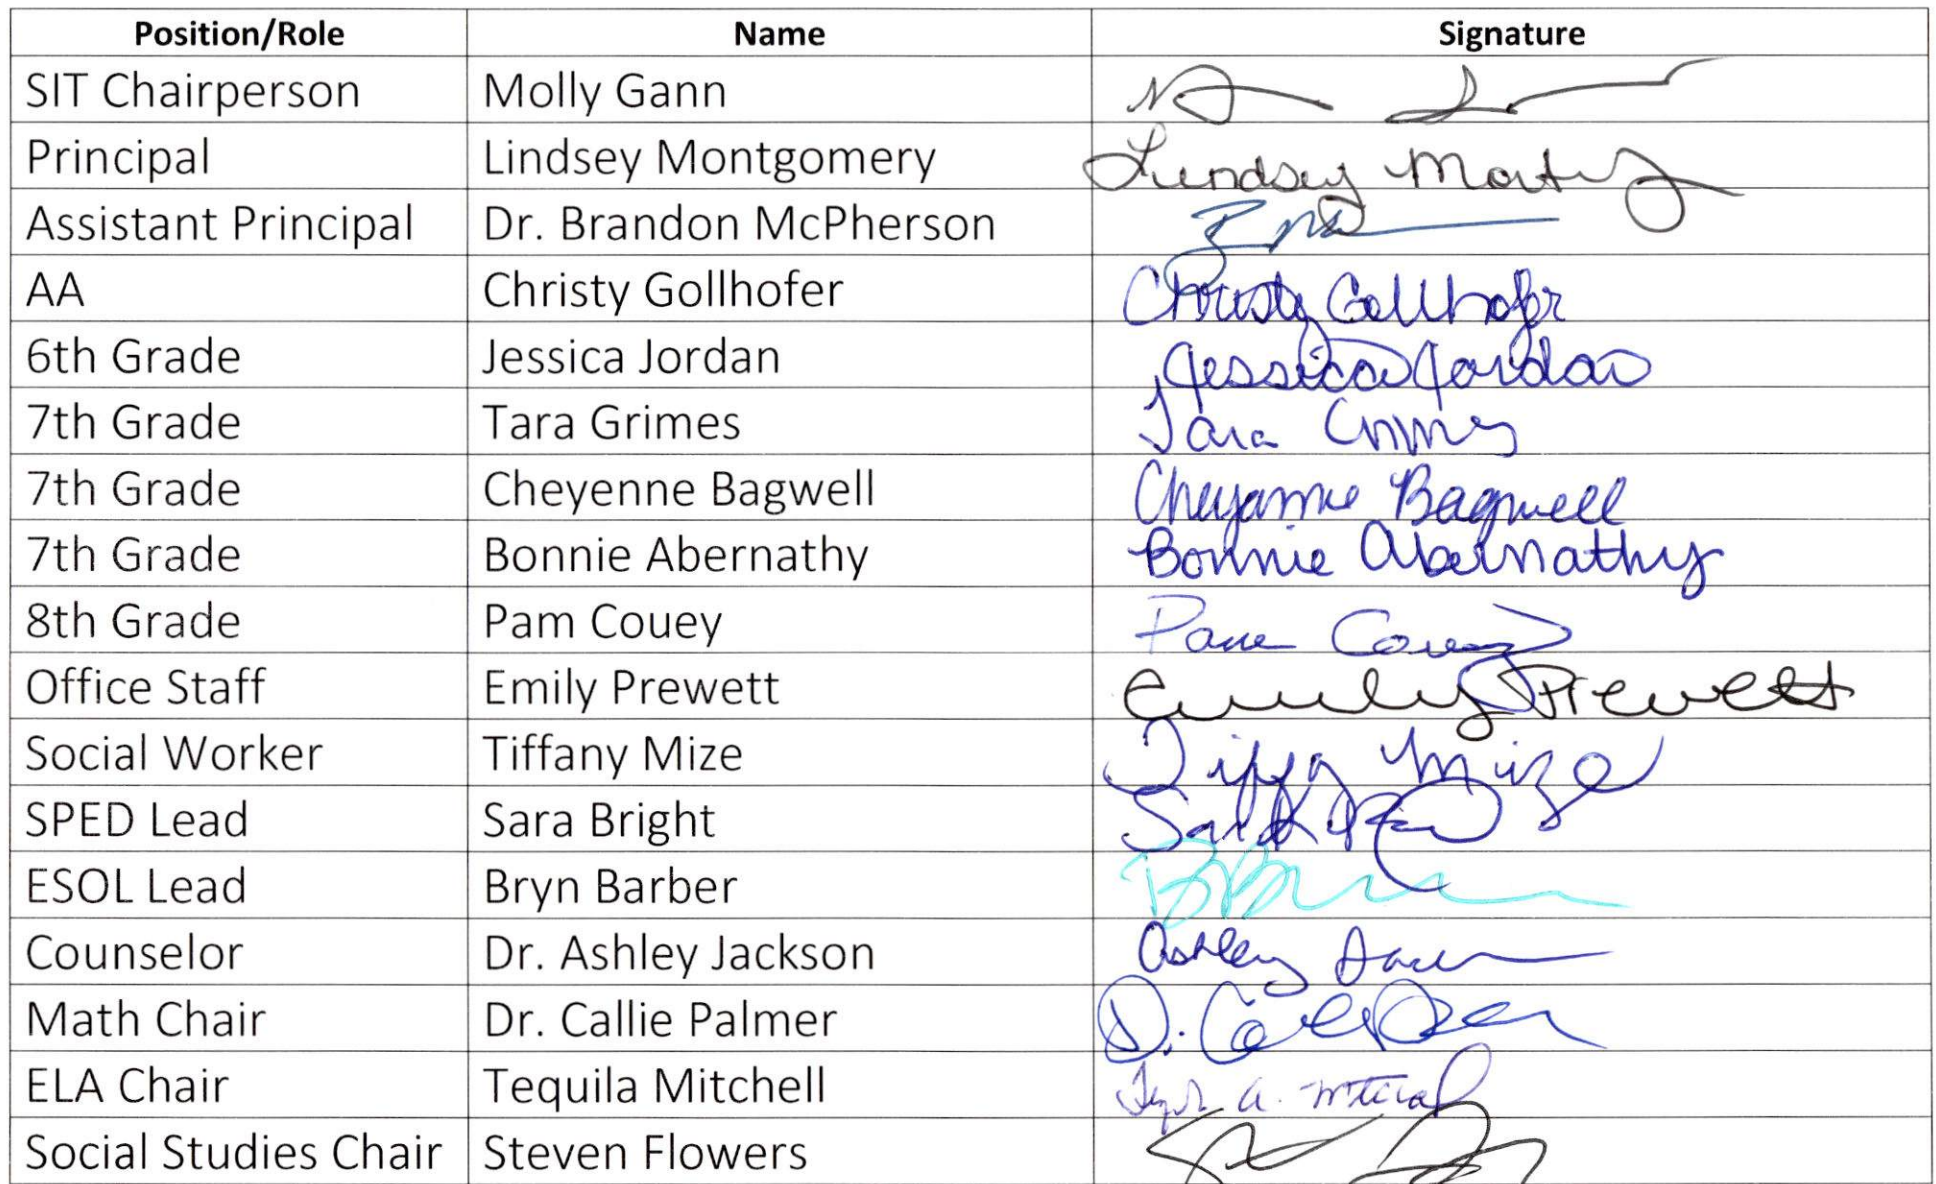 Position/Role Name Signature
SIT Chairperson Molly Gann
Principal Lindsey Montgomery Lindsey
Assistant Principal Dr. Brandon McPherson
AA Christy Gollhofer Christy Gollhofer
6th Grade Jessica Jordan Jessica Jordan
7th Grade Tara Grimes Tara Grimes
7th Grade Cheyenne Bagwell Cheyanne Bagwell
7th Grade Bonnie Abernathy Bonnie Abernathy
8th Grade Pam Couey Pam Couey
Office Staff Emily Prewett Emily Prewett
Social Worker Tiffany Mize Mize
SPED Lead Sara Bright
ESOL Lead Bryn Barber
Counselor Dr. Ashley Jackson Ashley
Math Chair Dr. Callie Palmer
ELA Chair Tequila Mitchell
Social Studies Chair Steven Flowers